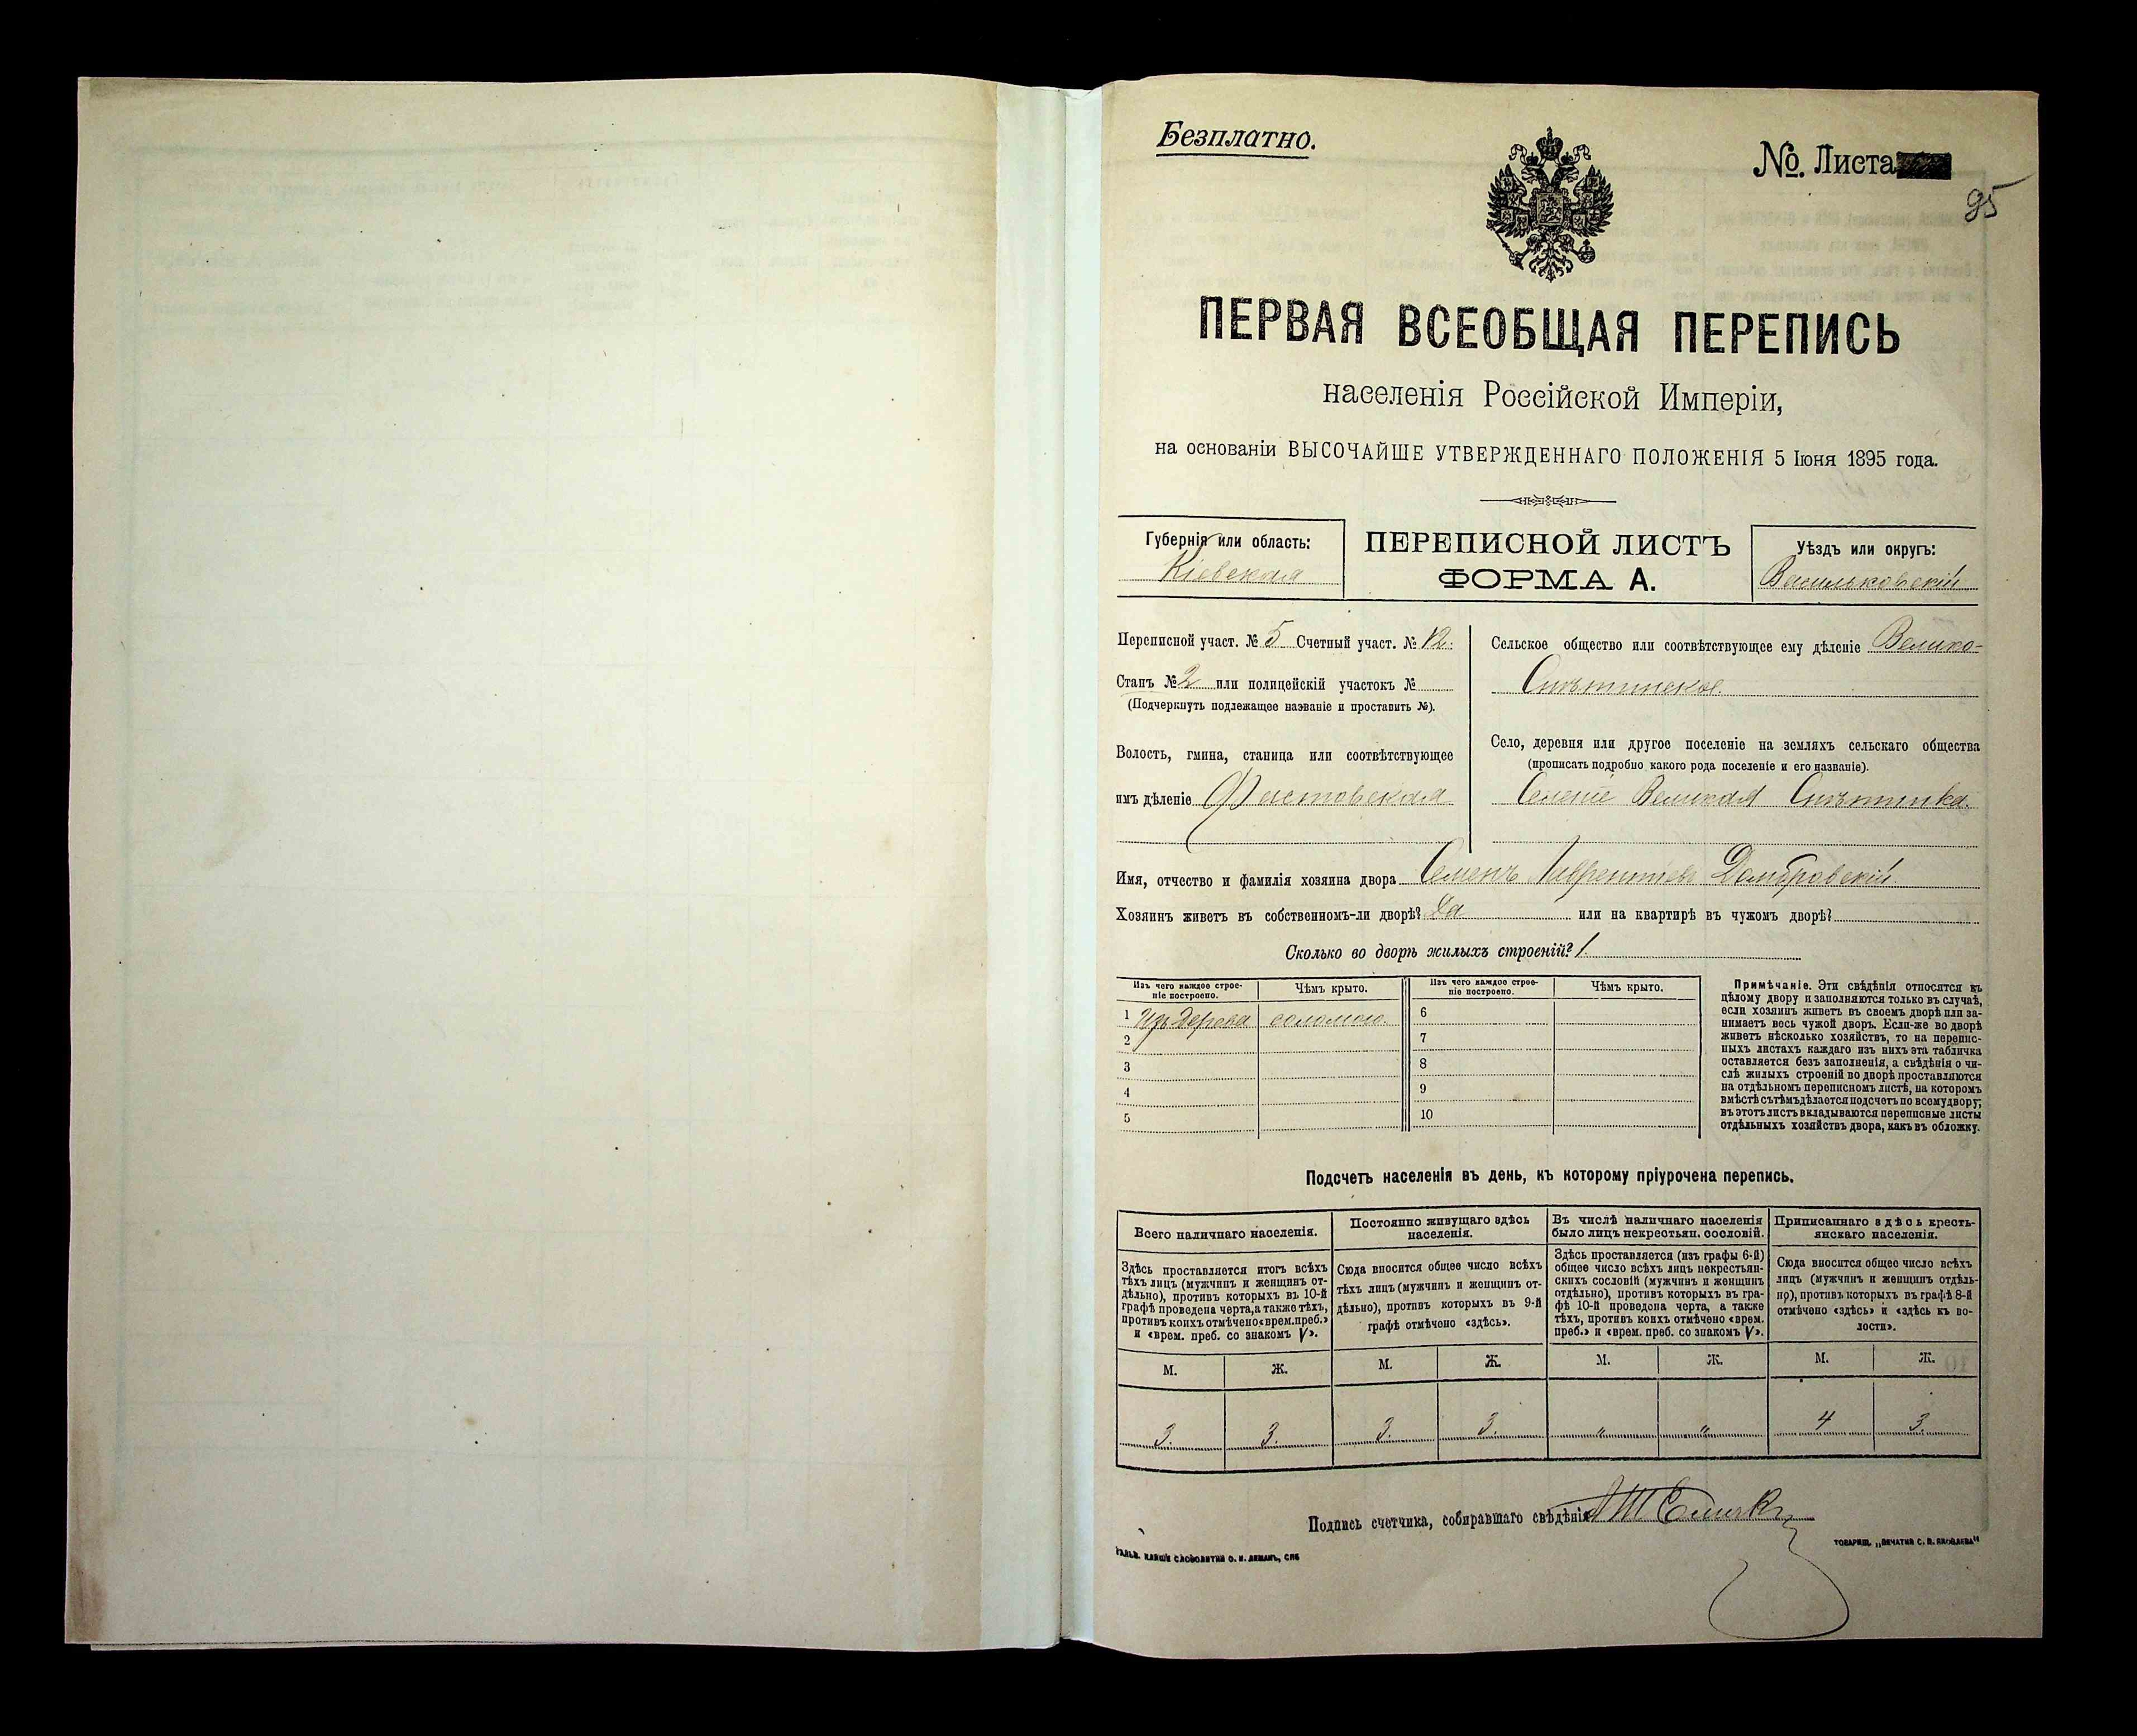 Безплатно.
№. Листа
95
ПЕРВАЯ ВСЕОБЩАЯ ПЕРЕПИСЬ
населенія Россійской Имперіи,
на основаніи ВЫСОЧАЙШЕ УТВЕРЖДЕННАГО ПОЛОЖЕНІЯ 5 Іюня 1895 года.
Губернія или область:
Кіевская
ПЕРЕПИСНОЙ ЛИСТЪ
ФОРМА А.
Уѣздъ или округъ:
Васильковскій
Переписной участ. № 5 Счетный участ. № 12.
Станъ № 2 или полицейскій участокъ №
(Подчеркнуть подлежащее названіе и проставить №).
Волость, гмина, станица или соотвѣтствующее
имъ дѣленіе Фастовская
Сельское общество или соотвѣтствующее ему дѣленіе Велико-
Снѣтинское.
Село, деревня или другое поселеніе на земляхъ сельскаго общества
(прописать подробно какого рода поселеніе и его названіе).
Селеніе Великая Снѣтинка.
Имя, отчество и фамилія хозяина двора Семенъ Лаврентіевъ Домбровскій
Хозяинъ живетъ въ собственномъ-ли дворѣ? Да или на квартирѣ въ чужомъ дворѣ?
Сколько во дворѣ жилыхъ строеній? 1.
Изъ чего каждое строе-
ніе построено.
Чѣмъ крыто.
Изъ чего каждое строе-
ніе построено.
Чѣмъ крыто.
1 Изъ дерева соломою. 6
2 7
3 8
4 9
5 10
Примѣчаніе. Эти свѣдѣнія относятся къ
цѣлому двору и заполняются только въ случаѣ,
если хозяинъ живетъ въ своемъ дворѣ или за-
нимаетъ весь чужой дворъ. Если-же во дворѣ
живетъ нѣсколько хозяйствъ, то на перепис-
ныхъ листахъ каждаго изъ нихъ эта табличка
оставляется безъ заполненія, а свѣдѣнія о чи-
слѣ жилыхъ строеній во дворѣ проставляются
на отдѣльномъ переписномъ листѣ, на которомъ
вмѣстѣ съ тѣмъ дѣлается подсчетъ по всему двору;
въ этотъ листъ вкладываются переписные листы
отдѣльныхъ хозяйствъ двора, какъ въ обложку.
Подсчетъ населенія въ день, къ которому пріурочена перепись.
Всего наличнаго населенія.
Здѣсь проставляется итогъ всѣхъ
тѣхъ лицъ (мужчинъ и женщинъ от-
дѣльно), противъ которыхъ въ 10-й
графѣ проведена черта, а также тѣхъ,
противъ коихъ отмѣчено «врем. преб.»
и «врем. преб. со знакомъ V».
Постоянно живущаго здѣсь
населенія.
Сюда вносится общее число всѣхъ
тѣхъ лицъ (мужчинъ и женщинъ от-
дѣльно), противъ которыхъ въ 9-й
графѣ отмѣчено «здѣсь».
Въ числѣ наличнаго населенія
было лицъ некрестьян. сословій.
Здѣсь проставляется (изъ графы 6-й)
общее число всѣхъ лицъ некрестьян-
скихъ сословій (мужчинъ и женщинъ
отдѣльно), противъ которыхъ въ гра-
фѣ 10-й проведена черта, а также
тѣхъ, противъ коихъ отмѣчено «врем.
преб.» и «врем. преб. со знакомъ V».
Приписаннаго здѣсь кресть-
янскаго населенія.
Сюда вносится общее число всѣхъ
лицъ (мужчинъ и женщинъ отдѣль-
но), противъ которыхъ въ графѣ 8-й
отмѣчено «здѣсь» и «здѣсь къ во-
лости».
М. Ж. М. Ж. М. Ж. М. Ж.
3. 3. 3. 3. " " 4 3.
Подпись счетчика, собиравшаго свѣдѣнія
ТОВАРИЩ. „ПЕЧАТНЯ С. П. ЯКОВЛЕВА"